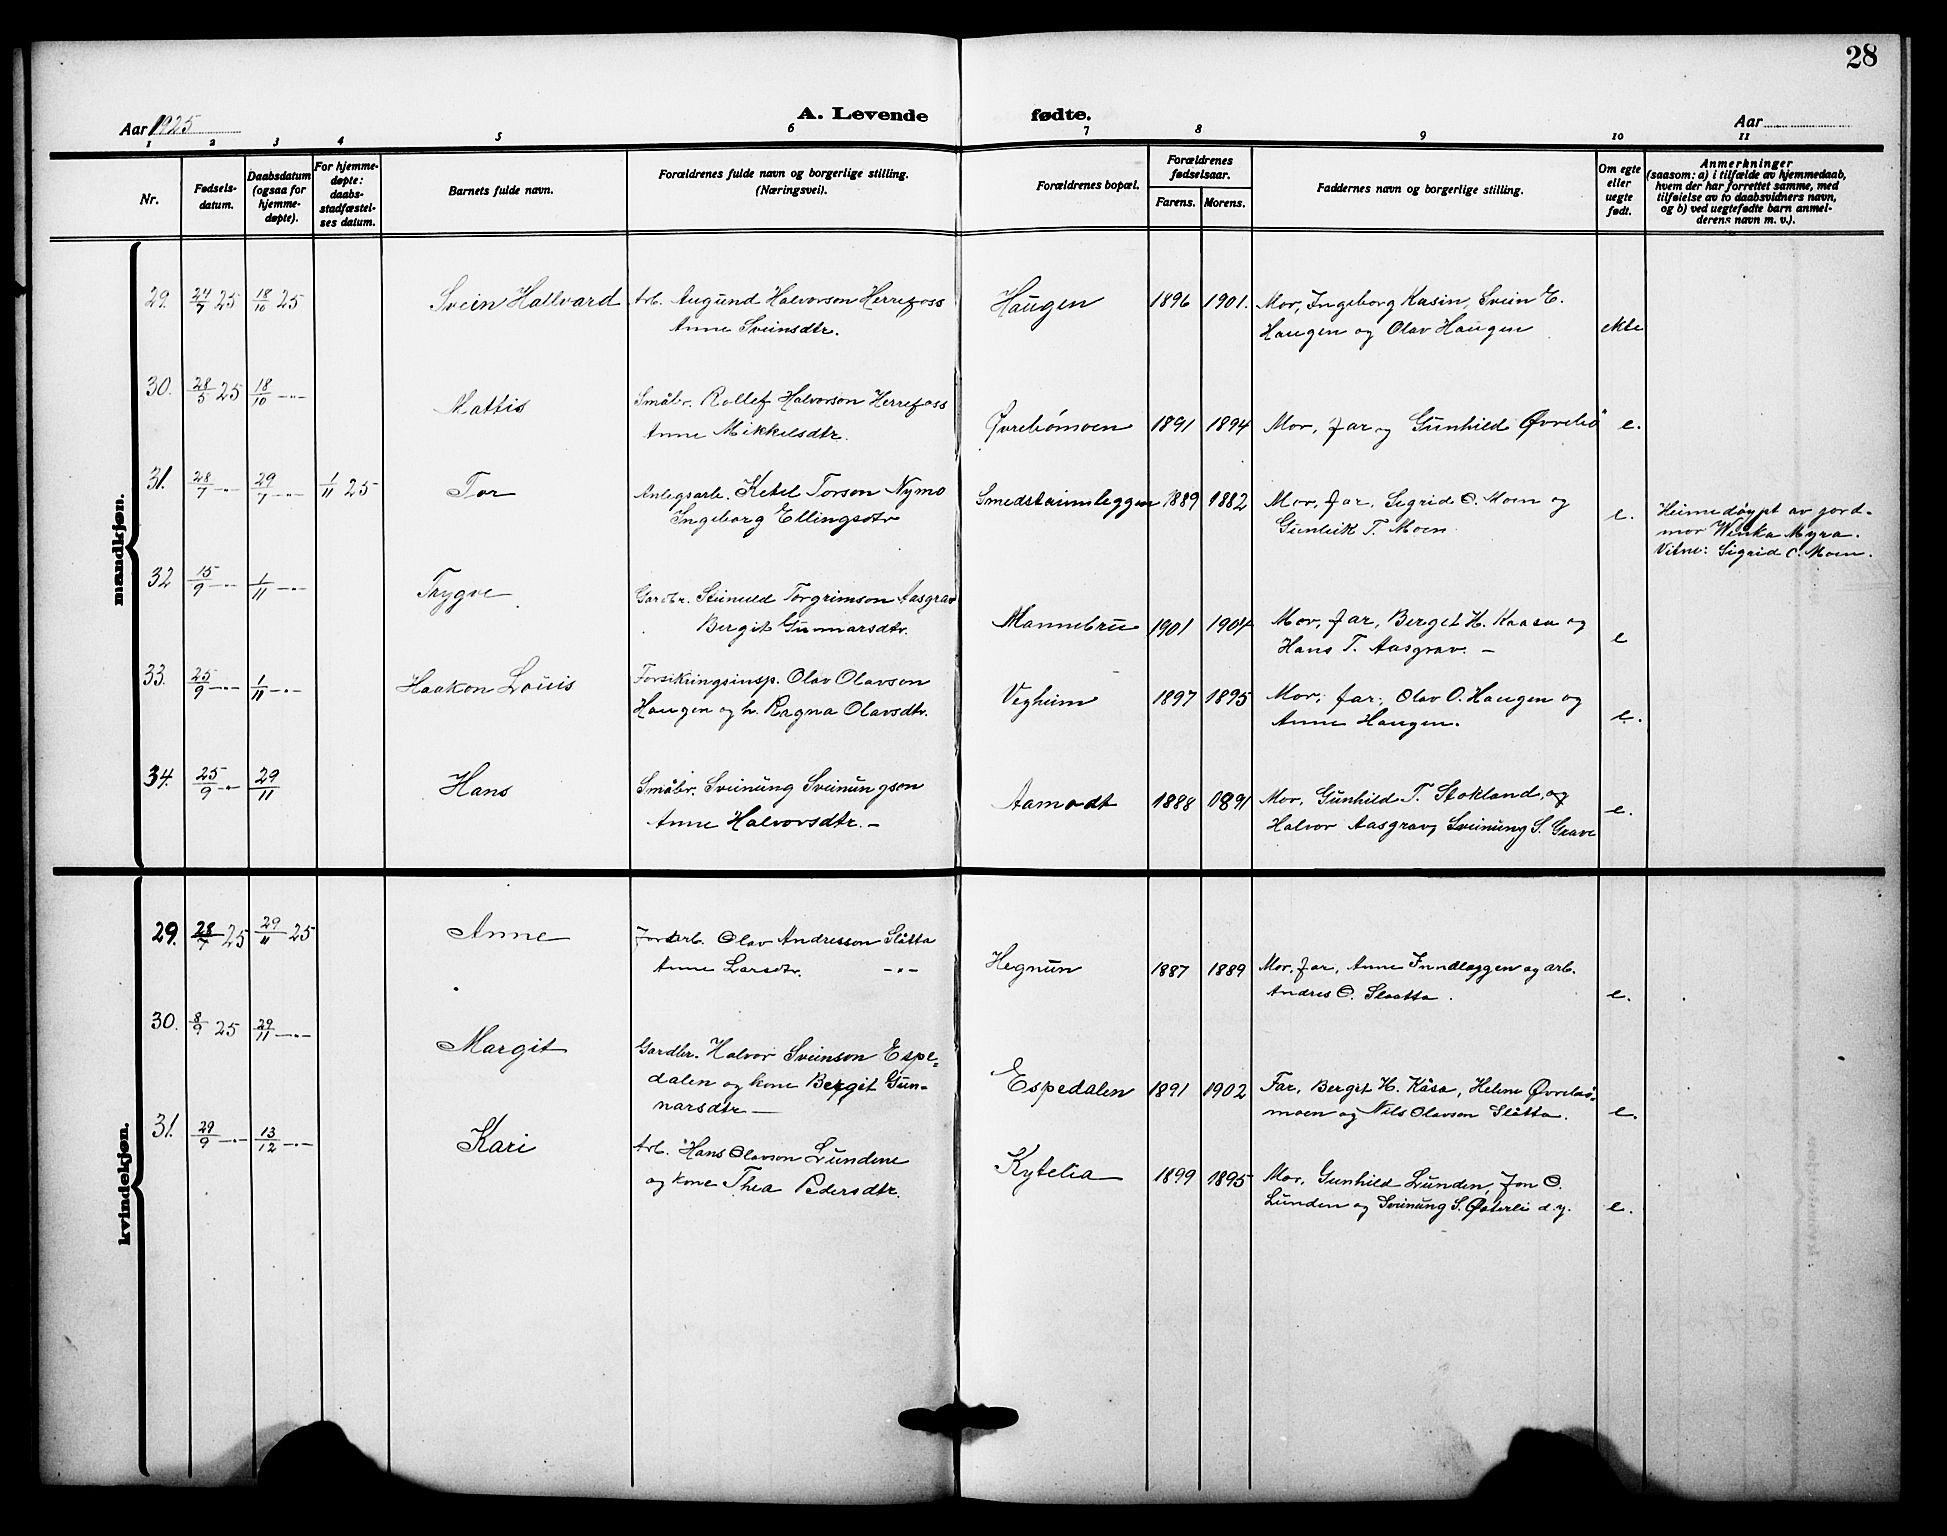 28
Aar 1925
A. Levende fødte.
Aar
1 2 3 4 5 6 7 8 9 10 11
Nr.
Fødsels-
datum.
Daabsdatum
(ogsaa for
hjemme-
døpte).
For hjemme-
døpte:
daabs-
stadfæstel-
ses datum.
Barnets fulde navn.
Forældrenes fulde navn og borgerlige stilling.
(Næringsvei).
Forældrenes bopæl.
Forældrenes
fødselsaar.
Farens. Morens.
Faddernes navn og borgerlige stilling.
Om egte
eller
uegte
født.
Anmerkninger
(saasom: a) i tilfælde av hjemmedaab,
hvem der har forrettet samme, med
tilføielse av to daabsvidners navn,
og b) ved uegtefødte barn anmel-
derens navn m. v.).
mandkjøn.
29. 24/7 25 18/10 25 Svein Hallvard Arb. Augund Halvorson Herrefoss Haugen 1896 1901. Mor, Ingeborg Kasin, Svein E.
Anne Sveinsdtr. Haugen og Olav Haugen ekte
30. 28/5 25 18/10 -"- Mattis Småbr. Rollef Halvorson Herrefoss
Anne Mikkelsdtr. Øvrebömoen 1891 1894 Mor, far og Gunhild Øvrebö e.
31. 28/7 -"- 29/7 -"- 1/11 25 Tor Anlegsarb. Ketel Torson Nymo Smedstaumleggen 1889 1882 Mor, far, Sigrid O. Moen og
Ingeborg Ellingsdtr Gunleik T. Moen e. Heimedöypt av jord-
mor Wenka Myra.
Vitne: Sigrid O. Moen.
32 15/9 -"- 1/11 -"- Trygve Gardbr. Steinuld Torgrimson Aasgrav
Bergit Gunnarsdtr. Mannebru 1901 1904 Mor, far, Berget H. Kaasa og
Hans T. Aasgrav. - e
33. 25/9 -"- 1/11 -"- Haakon Louis Forsikringsinsp. Olav Olavson
Haugen og h. Ragna Olavsdtr. Vegheim 1897 1895 Mor, far, Olav O. Haugen og
Anne Haugen. e.
34. 25/9 -"- 29/11 Hans Småbr. Sveinung Sveinungson
Anne Halvorsdtr. - Aamodt 1888 0891 Mor, Gunhild T. Stokland, og
Halvor Aasgrav, Sveinung S. Grave e.
kvindekjøn.
29. 28/7 25 29/11 25 Anne Jordarb. Olav Andresson Slåtta
Anne Larsdtr. -"- Hegnun 1887 1889 Mor, far, Anne Inndlæggen og arb.
Andres O. Slaatta. e.
30. 8/9 25 29/11 -"- Margit Gardbr. Halvor Sveinson Espe-
dalen og kone Bergit Gun-
narsdtr - Espedalen 1891 1902 Far, Bergit H. Kåsa, Helene Øvrebö-
moen og Nils Olavson Slåtta. e.
31. 29/9 -"- 13/12 -"- Kari Arb. Hans Olavson Lundene
og kone Thea Pedersdtr. Kytelia 1899 1895 Mor, Gunhild Lunden, Jon O.
Lunden og Sveinung S. Østerli d.y. e.